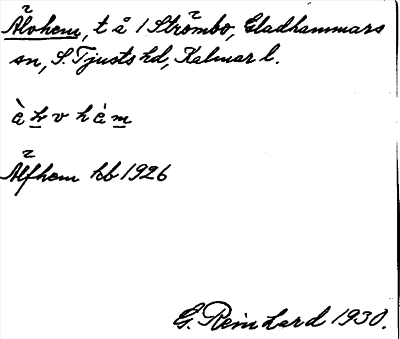 Älvhem, t å 1 Strömbo, Gladhammars
sn, S. Tjusts hd, Kalmar l.
Älfhem hb 1926
G. Reinhard 1930.